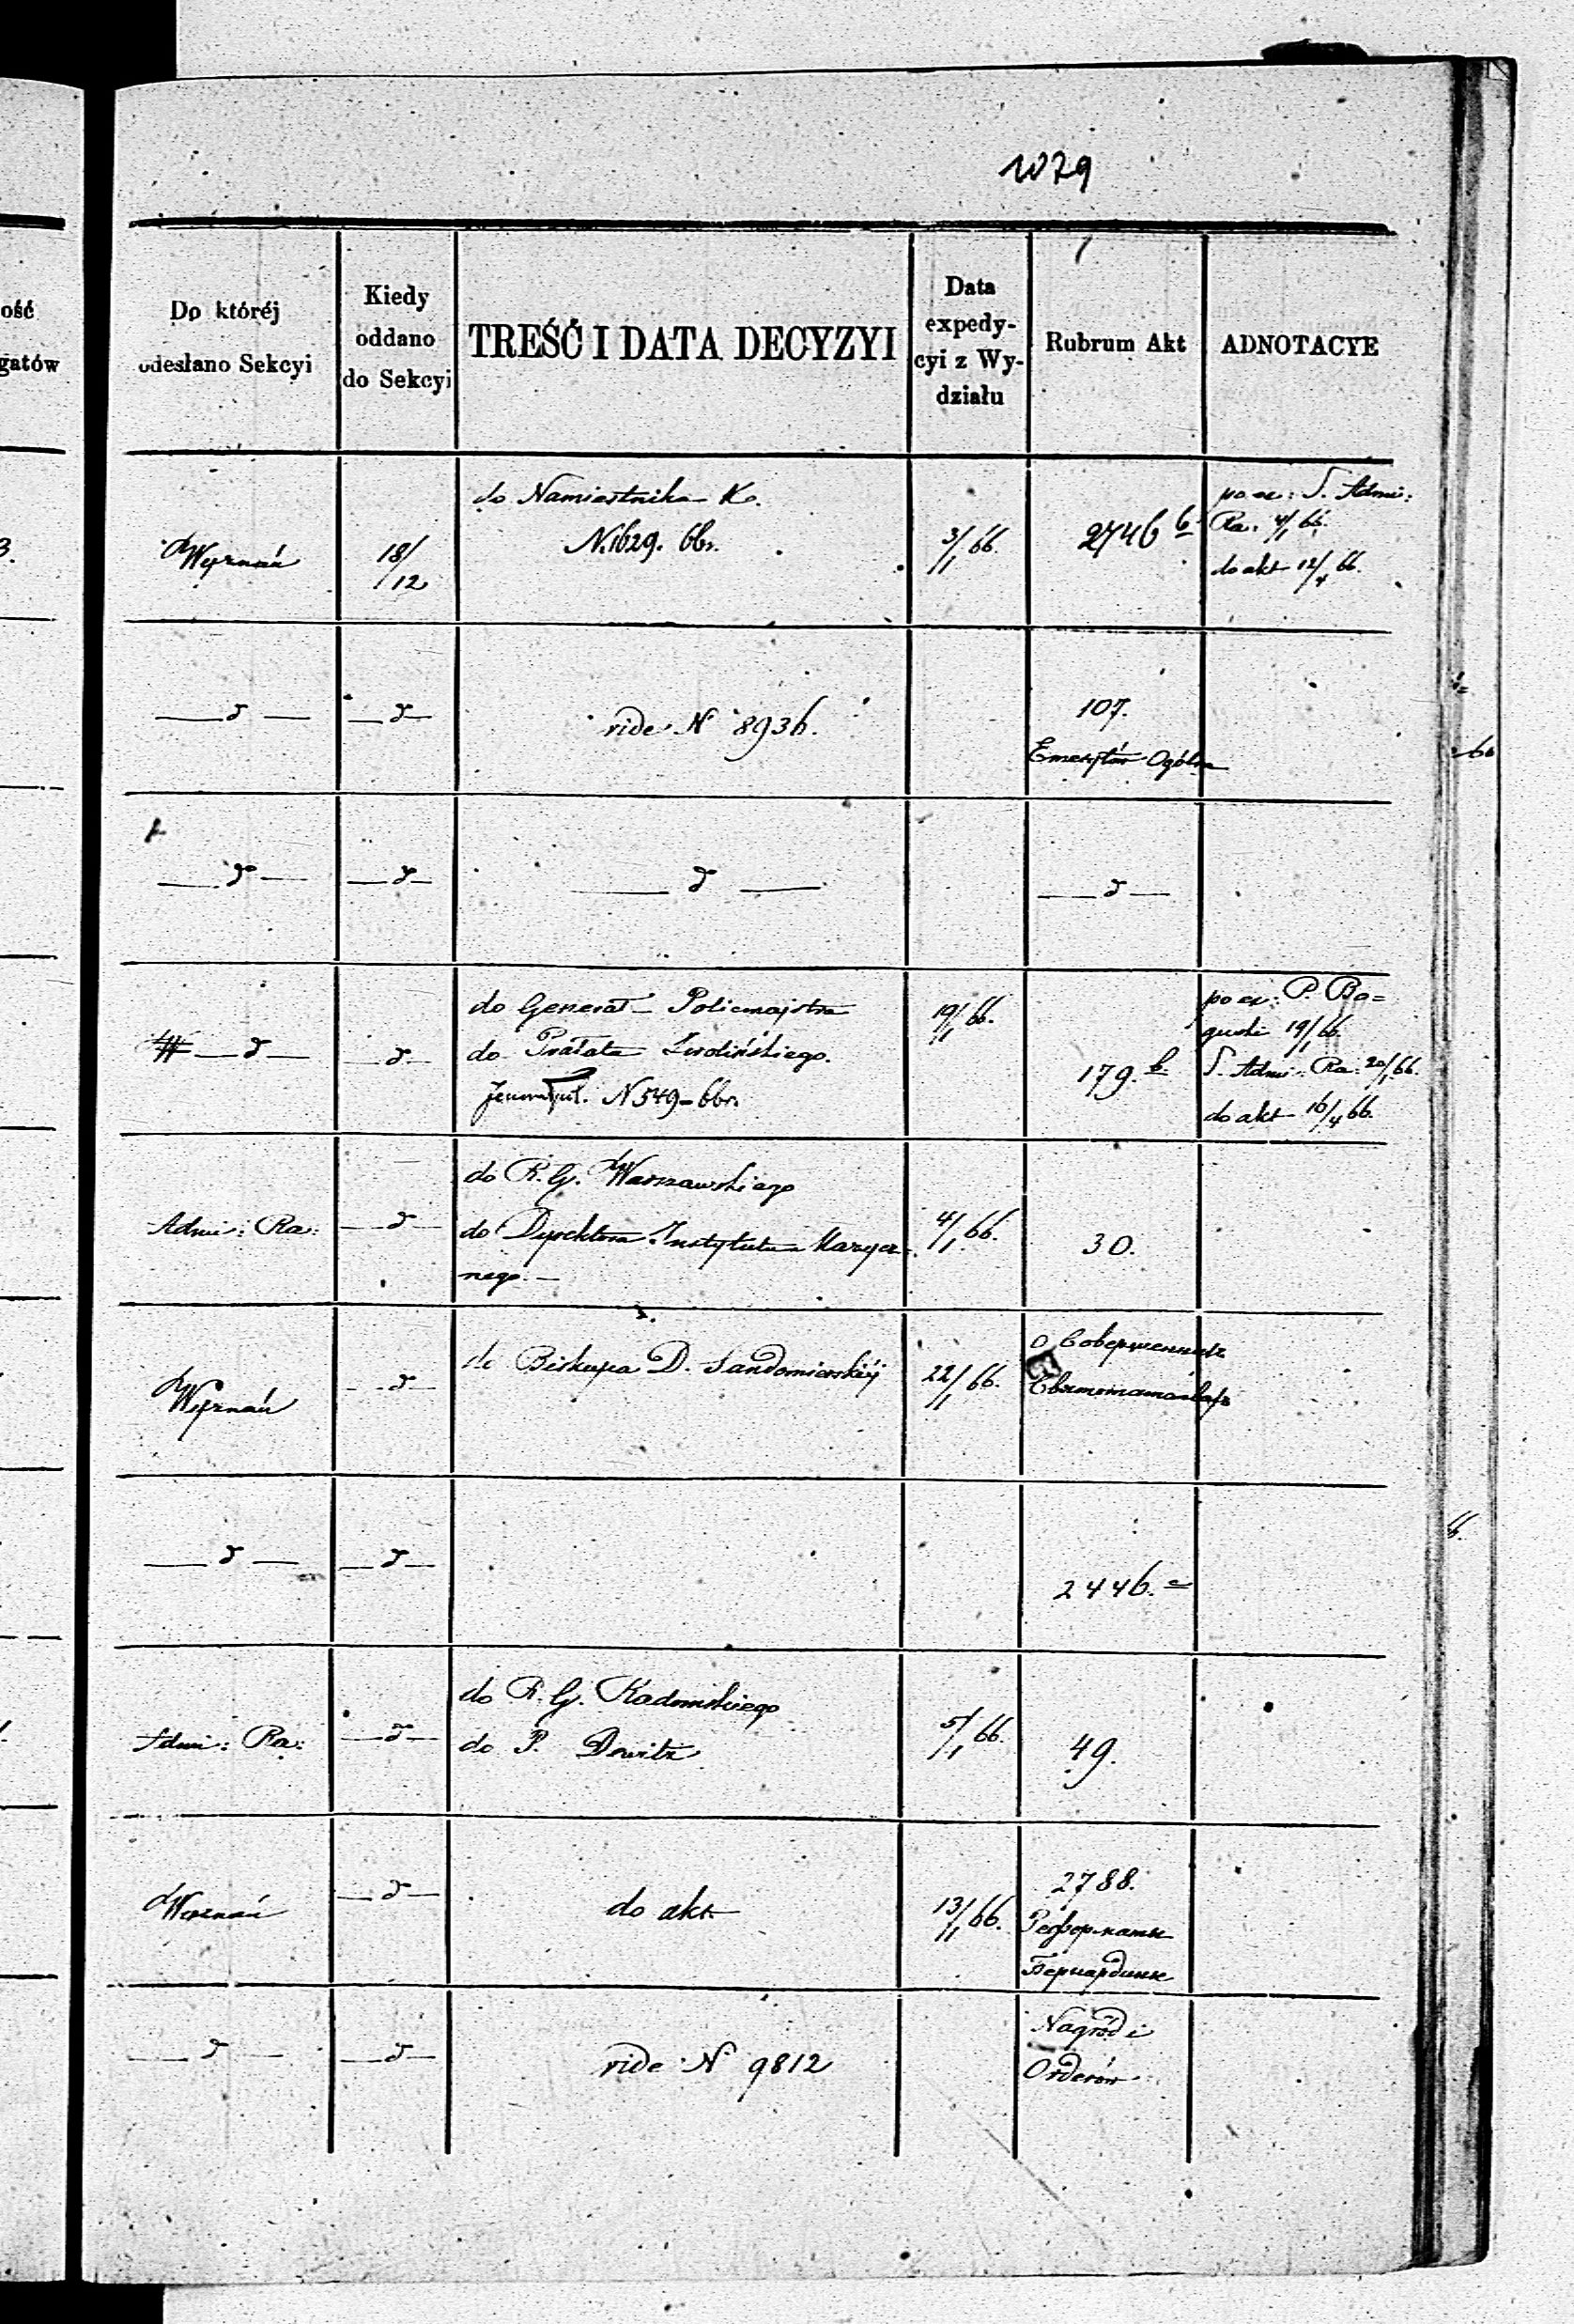 1079
ość
gatów
Do któréj
odesłano Sekcyi
Kiedy
oddano
do Sekcyi
TREŚĆ I DATA DECYZYI
Data
expedy-
cyi z Wy-
działu
Rubrum Akt
ADNOTACYE
Wyznań
18/12
do Namiestnika K.
N. 1629. 66r.
3/1 66.
2746 b
po ex: S. Admi:
Ra. 4/1 66.
do akt 12/4 66.
— d —
— d —
vide N 8936.
107.
Emerytów Ogólne
— d —
— d —
— d —
— d —
— d —
— d —
do Generał Policmajstra
do Prałata Zwolińskiego.
N 549 - 66r.
19/1 66.
179. b.
po ex: P. Bo=
guski 19/1 66.
S. Admi: Ra: 20/1 66.
do akt 16/4 66.
Admi: Ra:
— d —
do R. G. Warszawskiego
do Dyrektora Instytutu Maryen-
nego. —
4/1 66.
30.
Wyznań
— d —
do Biskupa D. Sandomierskiéj
22/1 66.
о
— d —
— d —
2446.
Admi: Ra:
— d —
do R. G. Radomskiego
do P. Dewitz
5/1 66.
49.
Wyznań
— d —
do akt
13/1 66.
2788.
Реформаты
Бернардины
— d —
— d —
vide N 9812
Nagród i
Orderów